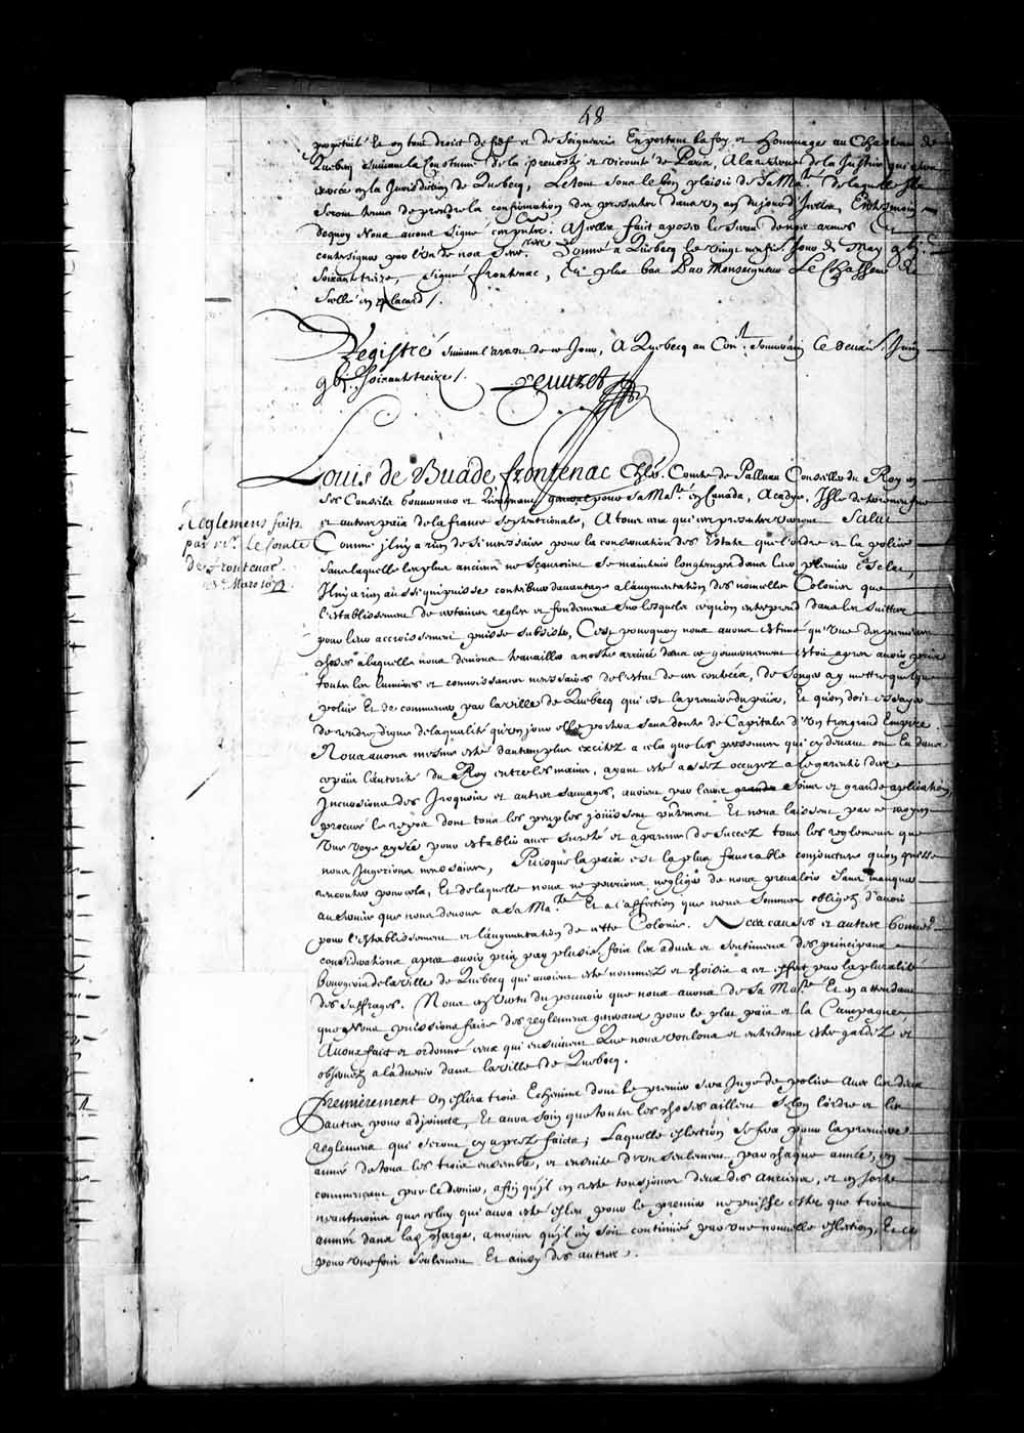 48
perpetuité et en tout droict de fief et de Seigneurie En portant la foy et hommage au Chasteau de
Quebecq suivant la Coustume de la prevosté et vicomté de Paris, A la reserve de la Justice qui
en la Jurisdiction de Quebecq, Le tout sous le bon plaisir de Sa Maté. de laquelle Ils
seront tenus de prendre la confirmation des presentes dans un an du jour d'Icelles, En tesmoin
dequoy Nous avons Signé ces pntes. A Icelles fait aposer le sceau de nos armes Et
contresigner par l'un de nos secres. Donné a Quebecq le vingt neufie. Jour de May gbjc.
soixante treize, signé frontenac, Et plus bas Par Monseigneur Le Chasseur Et
Scellé en placard /.
Registré suivant l'arrest de ce Jour, A Quebecq au Conl. Souverain Ce Juin
gbjc. soixante treize /. Peuvret
Louis de Buade frontenac Chlr. Comte de Palluau Conseiller du Roy en
Ses Conseils Gouverneur et Lieutenant pour Sa Maté. en Canada, Acadye, Isle de terre neufve
et autres païs de la france septentrionale, A tous ceux qui ces presentes verront Salut
Reglemens faits
par Mr. Le Comte
de Frontenac
Mars 167
Comme il n'y a rien de si necessaire pour la conservation des Estats que l'ordre et la police
sans laquelle les plus anciens ne sçauroient se maintenir longtemps dans leur premier Esclat,
Il n'y a rien aussi qui puisse contribuer davantage a l'augmentation des nouvelles Colonies que
l'establissement de certaines regles et fondemens sur lesquels ce qu'on entreprend dans les suittes
pour leur accroissement puisse subsister, C'est pourquoy nous avons estimé qu'une des premieres
choses a laquelle nous devions travailler a nostre arrivée dans ce gouvernement estoit apres avoir pris
toutes les lumieres et connoissances necessaires de l'estat de ces contrées, de songer a y mettre quelque
police Et de commencer par la ville de Quebecq qui est la premiere du païs, Et qu'on doit essayer
de rendre digne de la qualité qu'un jour elle portera sans doute de Capitale d'Un tres grand Empire.
Nous avons mesme esté d'autant plus excitez a cela que les personnes qui cy devant ont Eu dans
ce païs l'autorité du Roy entre les mains, ayant esté assez occupez a le garentir des
Incursions des Iroquois et autres Sauvages, avoient par leurs soins et grande aplication
procuré le repos dont tous les peuples joüissent presentement Et nous laissent par ce moyen
Une voye aysée pour establir avec Sureté et aparence de Succez tous les reglemens que
nous Jugerions necessaires, Puisque la paix est la plus favorable conjoncture qu'on puisse
rencontrer pour cela, Et de laquelle nous ne pourrions negliger de nous prevaloir sans manquer
au service que nous devons a Sa Maté. Et a l'affection que nous sommes obligez d'avoir
pour l'establissement et l'augmentation de cette Colonie. A ces causes et autres bonnes
considerations apres avoir pris par plusieurs fois les advis et sentimens des principaux
bourgeois de la ville de Quebecq qui avoient esté nommez et choisis a cet effect par la pluralité
des suffrages. Nous en vertu du pouvoir que nous avons de Sa Maté. Et en attendant
que Nous puissions faire des reglemens generaux pour le plat païs et la Campagne
Avons fait et ordonné ceux qui ensuivent Que nous voulons et entendons estre gardez et
observez a l'advenir dans la ville de Quebecq.
Premierement On eslira trois Echevins dont le premier sera Juge de police avec les deux
autres pour adjoints, Et aura soin que toutes les choses aillent selon l'ordre et les
reglemens qui seront cy aprez faits, Laquelle eslection se fera pour la premiere
année de tous les trois ensemble, et ensuite d'un seulement par chaque année, en
commençant par le dernier, affin qu'il en reste tousjours deux des anciens, et en sorte
neantmoins que celuy qui aura esté eslu pour le premier ne puisse estre que trois
années dans la charge, a moins qu'il n'y soit continué par une nouvelle eslection, Et ce
pour une fois seulement Et ainsy des autres.